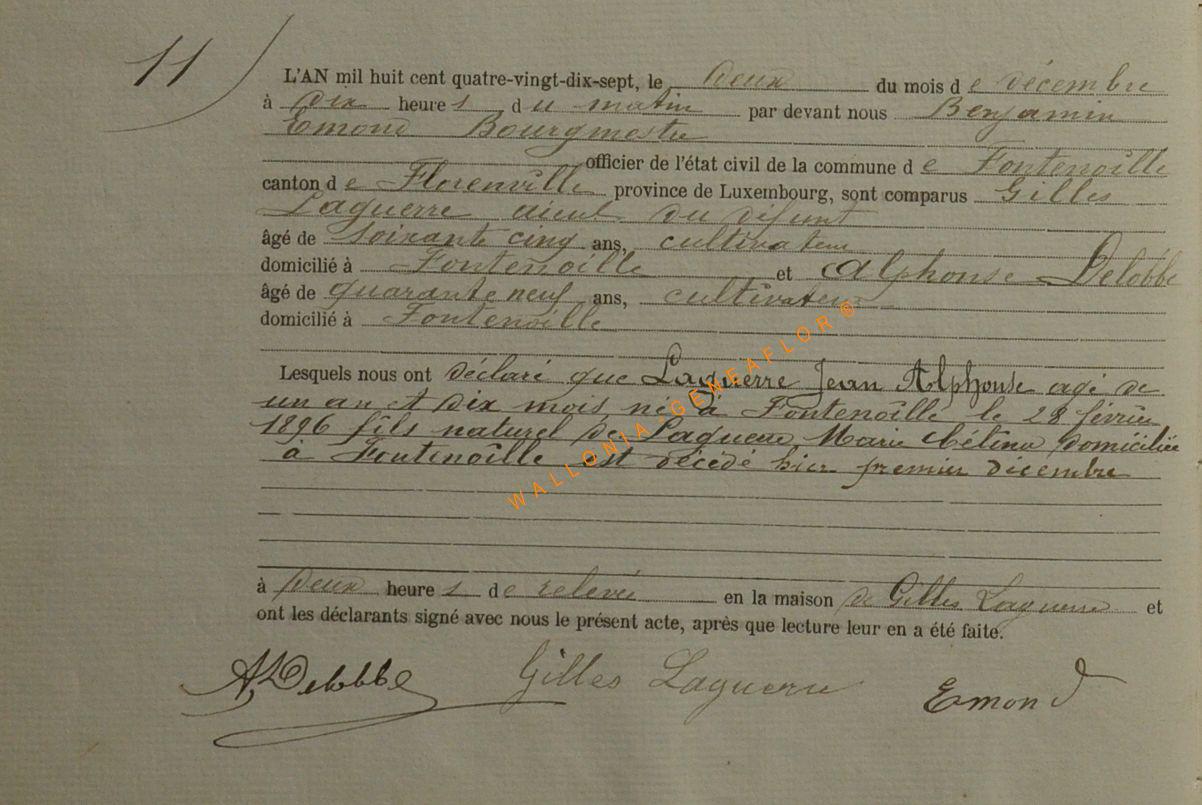 11
L'AN mil huit cent quatre-vingt-dix-sept, le deux du mois de décembre
à dix heures du matin par devant nous Benjamin
Emond Bourgmestre
officier de l'état civil de la commune de Fontenoille
canton de Florenville province de Luxembourg, sont comparus Gilles
Laguerre aieul du défunt
âgé de soixante cinq ans, cultivateur
domicilié à Fontenoille et Alphonse Delobbe
âgé de quarante neuf ans, cultivateur
domicilié à Fontenoille
Lesquels nous ont déclaré que Laguerre Jean Alphonse agé de
un an et dix mois, né à Fontenoille le 28 février
1896 fils naturel de Laguerre Marie Célina domiciliée
à Fontenoille est décédé hier premier décembre
à deux heures de relevée en la maison de Gilles Laguerre et
ont les déclarants signé avec nous le présent acte, après que lecture leur en a été faite.
A, Delobbe Gilles Laguerre Emond
WALLONIA-GENEAFLOR ©